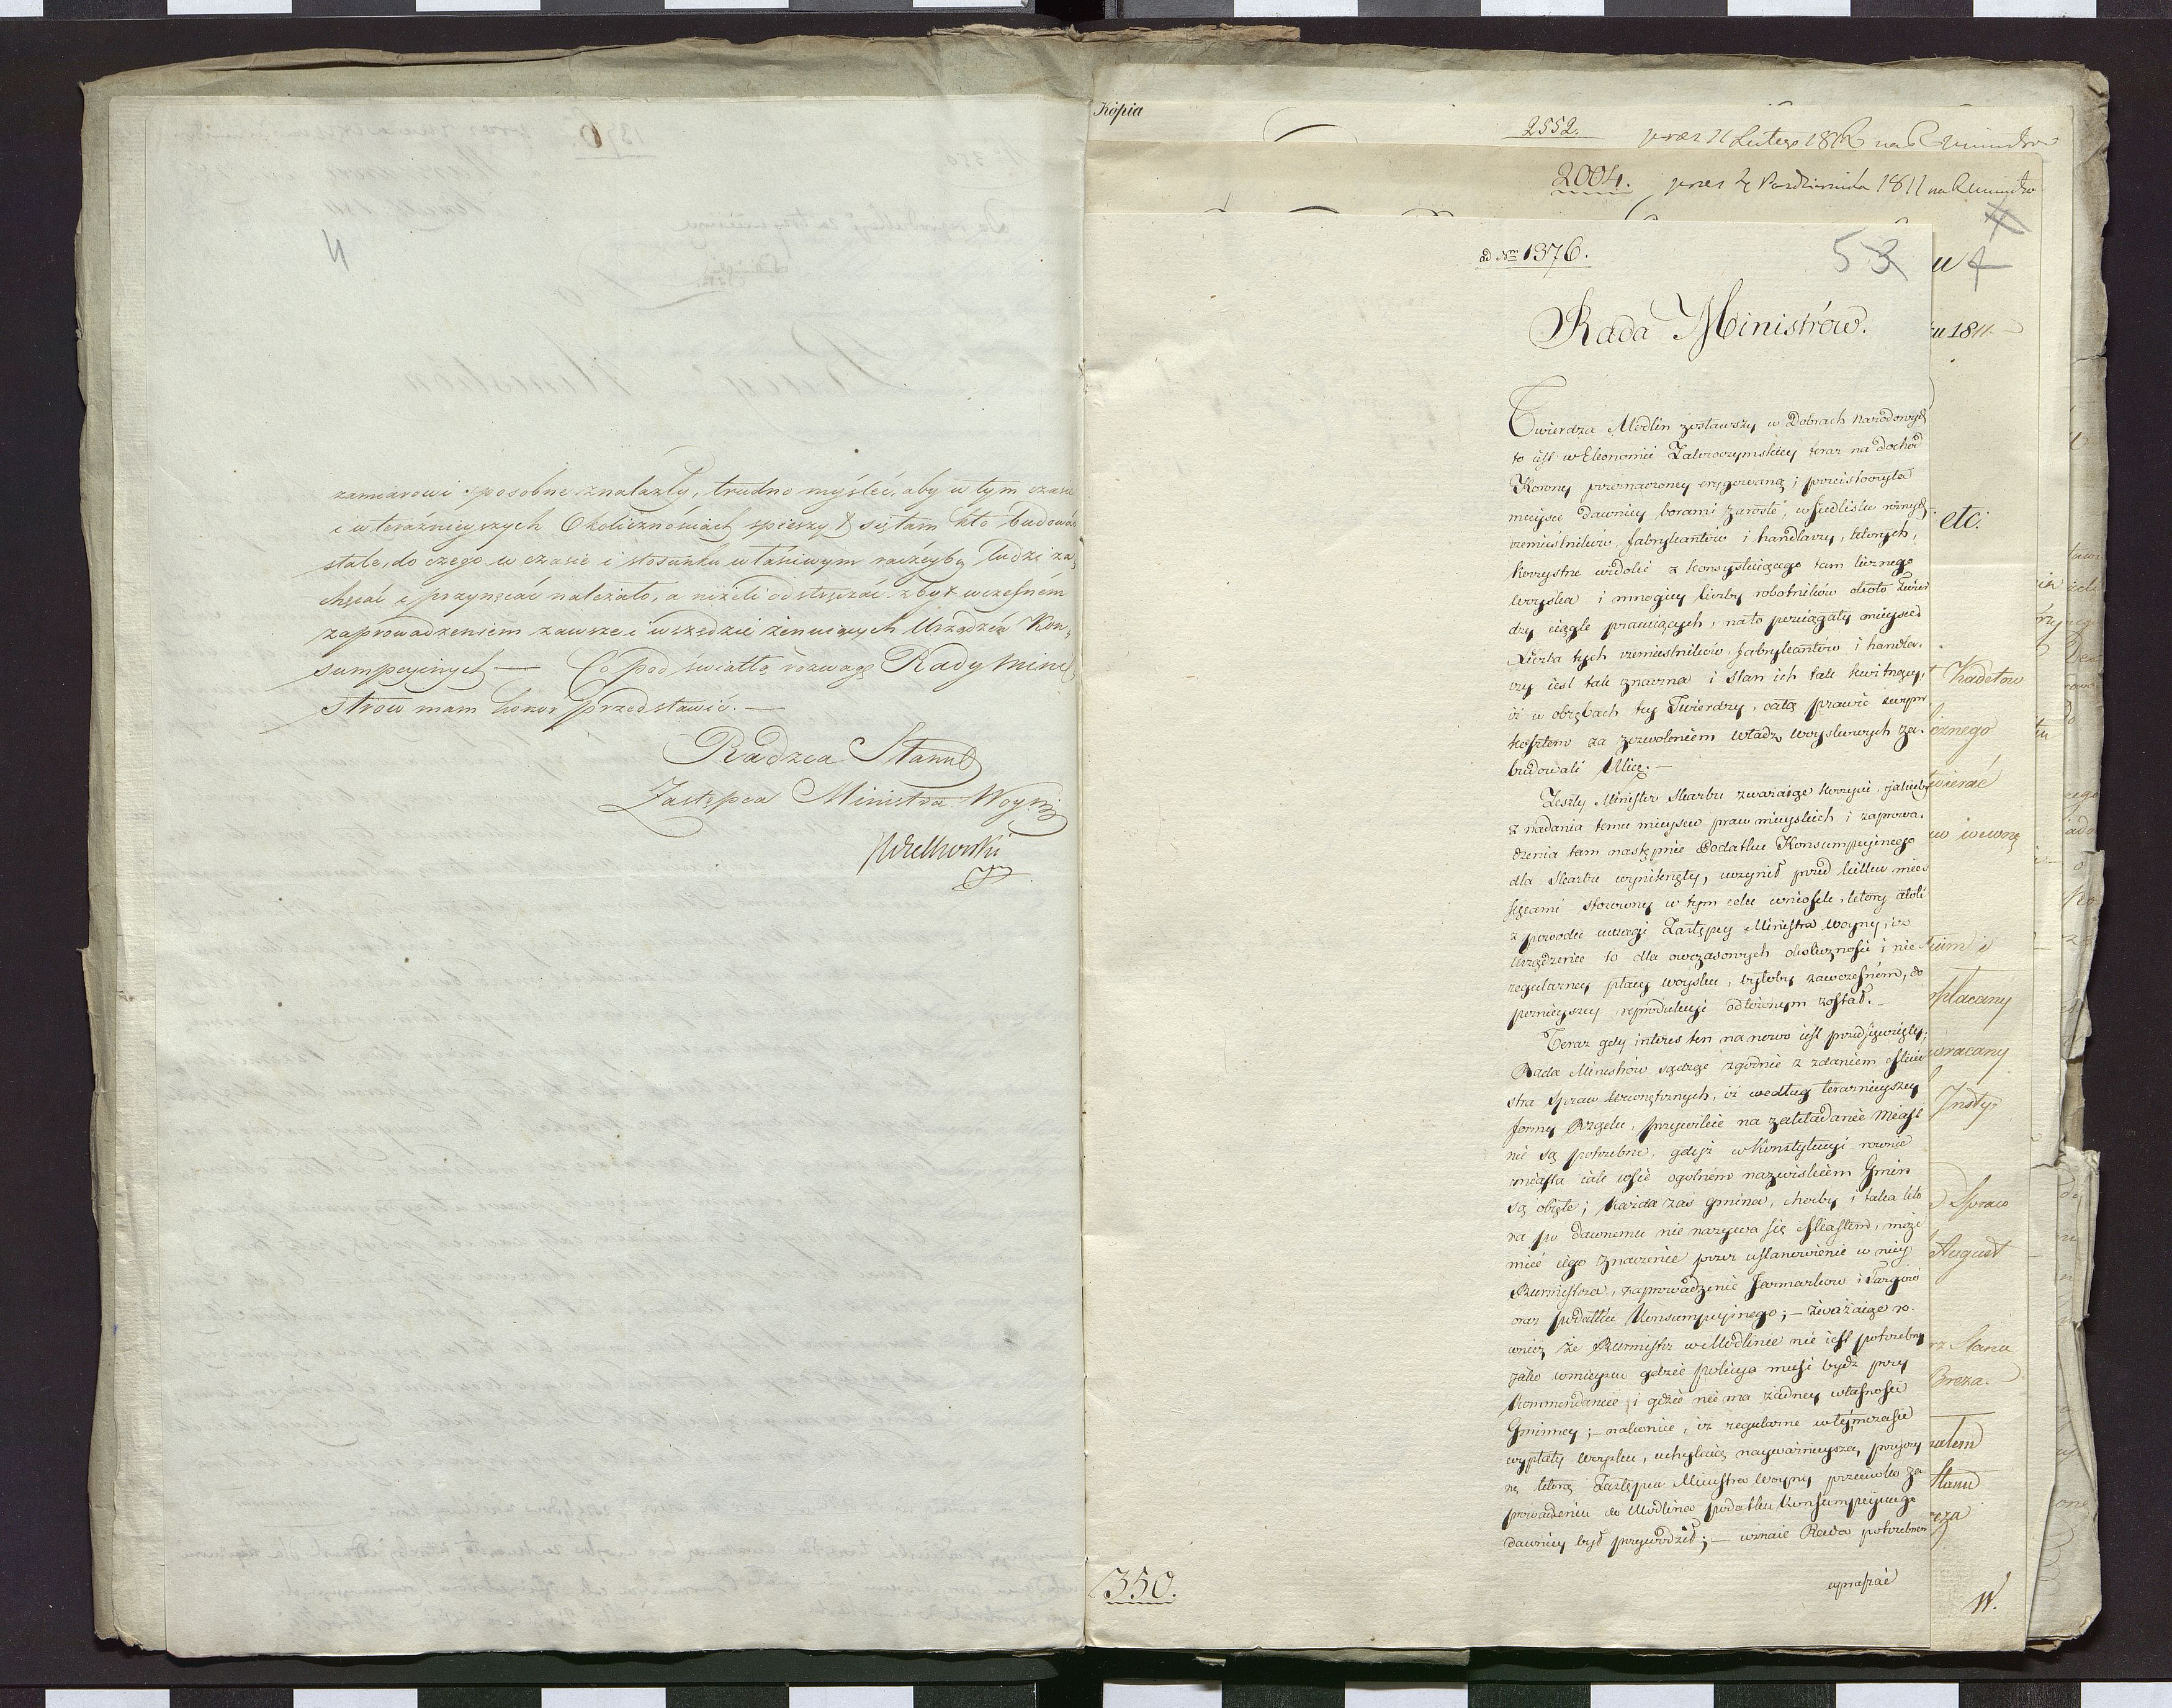 zamiarowi sposobne znalazły, trudno myśleć, aby w tym czasie
i w teraźnieyszych Okolicznościach spieszył się tam kto budować
stale, do czego w czasie i stosunku właściwym raczéyby ludzi za„
chęcać i przynęcać należało, a niżeli odstręczać zbyt wczesném
zaprowadzeniem zawsze i wszędzie żenuiących Urządzeń Kon„
sumpcyinych — Co pod światłą rozwagę Rady Mini„
strow mam honor przedstawić. —
Radzca Stanu
Zastępca Ministra Woyny
Wielhorski
Kopia
2552.
prez 11 Lutego 1812 na R Ministrów
2004.
prez 4 Października 1811 na R Ministrów
ad Nrm 1376.
53
Rada Ministrów.
Twierdza Modlin zostawszy w Dobrach Narodowych
to iest w Ekonomii Zakroczymskiey teraz na dochód
Korony przeznaczoney erygowaną; przeistoczyła
mieysce dawniey borami zarosłe, w siedlisko różnych
rzemieślników, fabrykantów i handlarzy, których,
korzystne widoki z konsystuiącego tam licznego
woyska i mnogiey liczby robotników około Twier
dzy ciągle pracuiących, na to przeciągały mieysce
Liczba tych rzemieślników fabrykantów i handla.
rzy iest tak znaczna i stan ich tak kwitnący,
iż w obrębach tey Twierdzy, całą prawie swym
kosztem za zezwoleniem Władz woyskowych za.
budowali Ulicę. —
Zeszły Minister Skarbu zważaiąc korzyści, jakieby
z nadania temu mieyscu praw mieyskich i zaprowa.
dzenia tam następnie Podatku Konsumpcyinego
dla Skarbu wyniknęły, uczynił przed kilku mie
siącami stosowny w tym celu wniosek, który atoli
z powodu uwagi Zastępcy Ministra Woyny, iż
urządzenie to dla owczasowych okoliczności i nie
regularney płacy woysku, byłoby zawczesném, do
pozniejszey reprodukcyi odłożonym został. —
Teraz gdy interes ten na nowo iest przedsięwzięty;
Rada Ministrów sądząc zgodnie z zdaniem Mini
stra Spraw Wewnętrznych, iż według teraznieyszey
formy Rządu, przywileie na zakładanie Miast
nie są potrzebne, gdyż w Konstytucyi rownie
miasta iak wsie ogolném nazwiskiem Gmin
są obięte; każda zaś gmina, choćby i taka kto
ra po dawnemu nie nazywa się Miastem, może
mieć iego znaczenie przez ustanowienie w niey
Burmistrza, zaprowadzenie Jarmarkow i Targów
oraz podatku Konsumpcyinego; — zważaiąc ro.
wnież że Burmistrz w Modlinie nie iest potrzebny
jako w mieyscu gdzie policya musi bydź przy
Kommendancie, i gdzie nie ma żadney własności
Gminney; — nakoniec, iż regularne w tymczasie
wypłaty woysku, uchylaią nayważnieyszą, przyczy
nę którą Zastępca Ministra Woyny przeciwko za
prowadzeniu do Modlina podatku konsumpcyinego
dawniey był przywodził; — uznaie Rada potrzebném
upraszać
350.
u 4
u 1811.
etc:
Kadetow
cznego
wierać
w iewną
płacany
wracany
Insty„
Spraw
August
rz Stanu
Breza.
Stanu
reza
W.